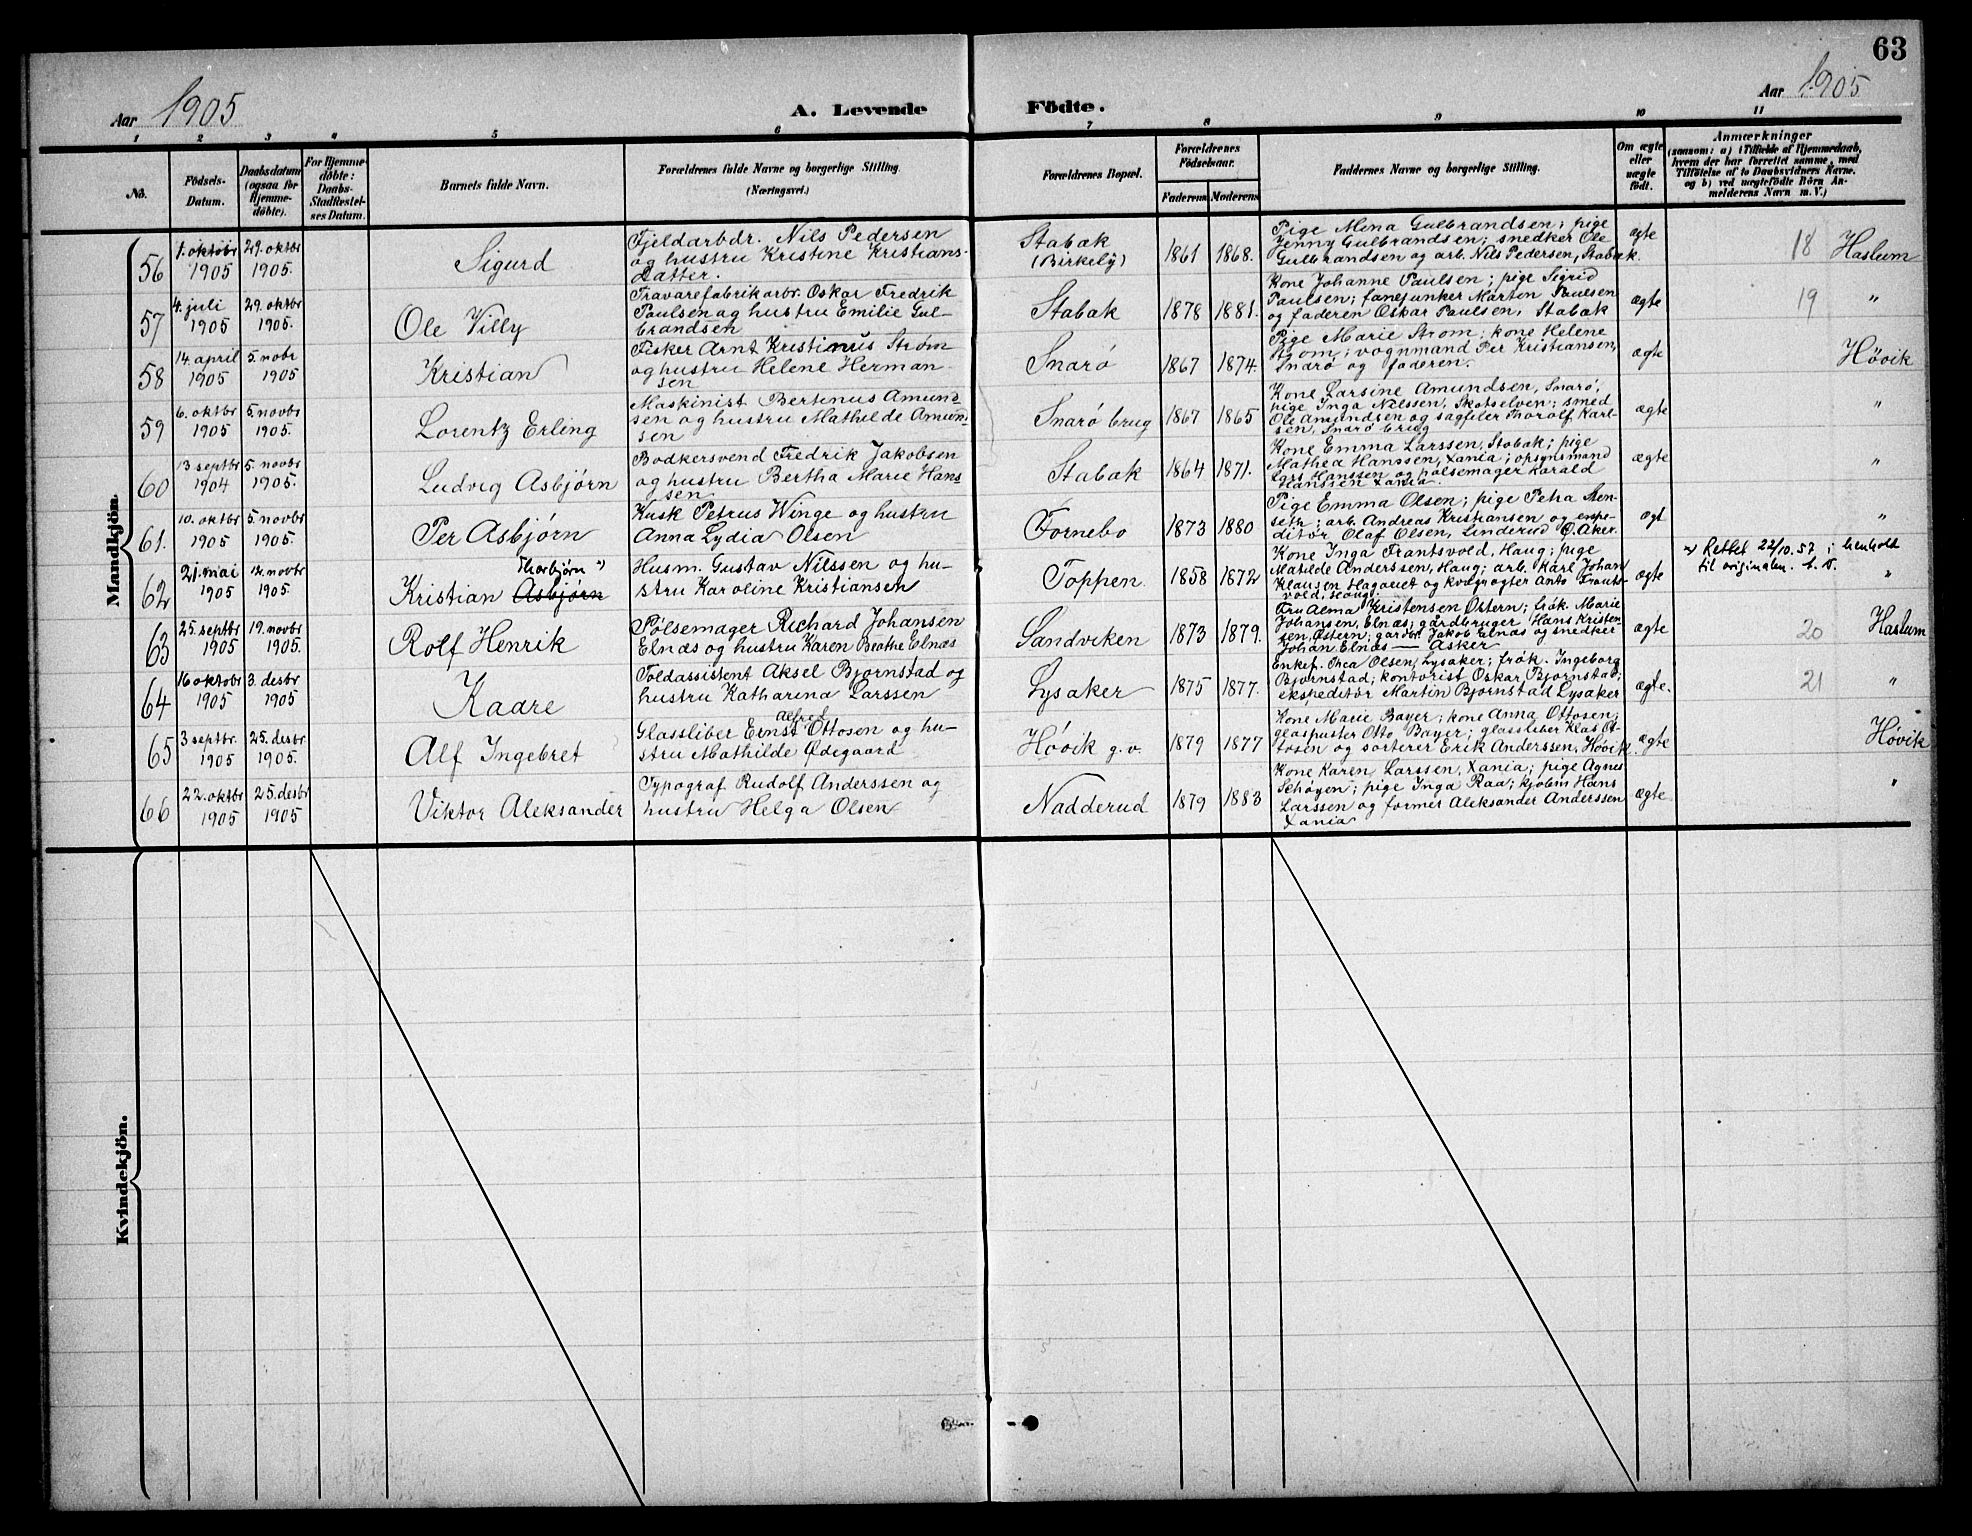 63
Aar 1905
A. Levende
Födte.
Aar 1905
1 2 3 4 5 6 7 8 9 10 11
No.
Födsels-
Datum.
Daabsdatum
(ogsaa for
Hjemme-
döbte).
For Hjemme-
døbte:
Daabs-
Stadfæstel-
ses Datum.
Barnets fulde Navn.
Forældrenes fulde Navne og borgerlige Stilling.
(Næringsvei.)
Forældrenes Bopæl.
Forældrenes
Födselsaar.
Faderens Moderens
Faddernes Navne og borgerlige Stilling.
Om ægte
eller
uægte
födt.
Anmærkninger
(saasom: a) i Tilfælde af Hjemmedaab,
hvem der har forrettet samme, med
Tilföielse af to Daabsvidners Navne,
og b) ved uægtefödte Börn An-
melderens Navn m. V.)
Mandkjön.
56
1. oktobr
1905
29. oktbr
1905.
Sigurd
Fjeldarbdr. Nils Pedersen
og hustru Kristine Kristians-
datter.
Stabæk
(Birkely)
1861 1868.
Pige Mina Gulbrandsen; pige
Jenny Gulbrandsen; snedker Ole
Gulbrandsen og arb. Nils Pedersen, Stabæk.
ægte
18 Haslum
57
4. juli
1905
29. oktbr
1905.
Ole Villy
Travarefabrikarbr. Oskar Fredrik
Paulsen og hustru Emilie Gul-
brandsen
Stabæk
1878 1881.
Kone Johanne Paulsen; pige Sigrid
Paulsen; fanejunker Marten Paulsen
og faderen Oskar Paulsen, Stabæk
ægte
19 "
58
14. april
1905
5. nobr
1905
Kristian
Fisker Arnt Kristinus Strøm
og hustru Helene Herman-
sen
Snarö
1867 1874.
Pige Marie Strøm; kone Helene
Strøm; vognmand Per Kristiansen,
Snarø og faderen.
ægte
Høvik
59
6. oktbr
1905
5. novbr
1905.
Lorentz Erling
Maskinist Bertinus Amund-
sen og hustru Mathilde Amun-
sen
Snarö brug
1867 1865
Kone Larsine Amundsen, Snarø,
pige Inga Nilssen, Skotselven; smed
Ole Amundsen og sagfiler Thorolf Karl-
sen, Snarø brug
ægte
"
60
13 septbr
1904
5. novbr
1905.
Ludvig Asbjørn
Bødkersvend Fredrik Jakobsen
og hustru Bertha Marie Hans
sen
Stabæk
1864 1871.
Kone Emma Larssen, Stabak; pige
Mathea Hanssen, Xania; opsynsmand
Lars Hanssen og pølsemager Harald
Hanssen Xania.
ægte
"
61.
10. oktbr
1905
5. novbr
1905.
Per Asbjørn
Kusk Petrus Winge og hustru
Anna Lydia Olsen
Fornebo
1873 1880
Pige Emma Olsen; pige Petra Sten-
seth; arb. Andreas Kristiansen og expe-
ditör Olaf Olsen, Linderud Ø. Aker.
ægt
"
62
21. mai
1905
12. novbr
1905.
Thorbjørn x)
Kristian Asbjørn
Husm. Gustav Nilssen og hu-
stru Karoline Kristiansen
Toppen.
1858 1872
Kone Inga Frantsvold, Haug; pige
Matilde Anderssen, Haug; arb. Karl Johan
Klausen Hagavet og kvægrøgter Anto Frants-
vold, Haug.
ægte
x) Rettet 22/10.57 i henhold
til originalen.
"
63
25. septbr
1905
19. novbr
1905.
Rolf Henrik
Pølsemager Richard Johansen
Elnæs og hustru Karen Beathe Elnæs
Sandviken
1873 1879.
Fru Alma Kristensen Østern; frøk. Marie
Johansen, Elnæs; gårdbruger Hans Kristen-
sen, Østern; gårdbr. Jakob Elnæs og snedker
Johan Elnæs — Asker
ægte
20 Haslum
64
16 oktobr
1905
3. desbr
1905
Kaare
Toldassistent Aksel Bjørnstad og
hustru Katharina Larssen
Lysaker
1875 1877.
Enkef. Thea Olsen, Lysaker; frøk. Ingeborg
Bjørnstad; kontorist Oskar Bjørnstad;
ekspeditör Martin Bjørnstad Lysaker
ægte.
21 "
65
3 septbr.
1905
25. desbr
1905.
Alf Ingebret
Alfred
Glassliber Ernst Ottosen og hu-
stru Mathilde Ødegaard
Høvik g.v.
1879 1877
Kone Marie Bayer; kone Anna Ottosen;
glaspuster Otto Bayer; glassliber Klas Ot-
tosen og sorterer Erik Anderssen, Høvik
ægte
Høvik
66
22. oktbr
1905
25. desbr
1905
Viktor Aleksander
Typograf Rudolf Anderssen og
hustru Helga Olsen
Nadderud
1879 1883
Kone Karen Larssen, Xania; pige Agnes
Schøyen; pige Inga Raa; kjøbm Hans
Larssen og former Aleksander Anderssen
Xania
ægte
"
Kvindekjön.